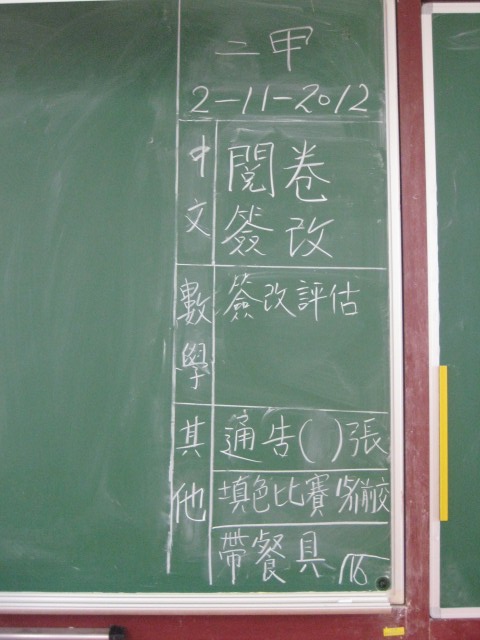 二甲
2-11-2012
中文
閱卷
簽改
數學
簽改評估
其他
通告( )張
填色比賽 15/11前交
帶餐具 1/16